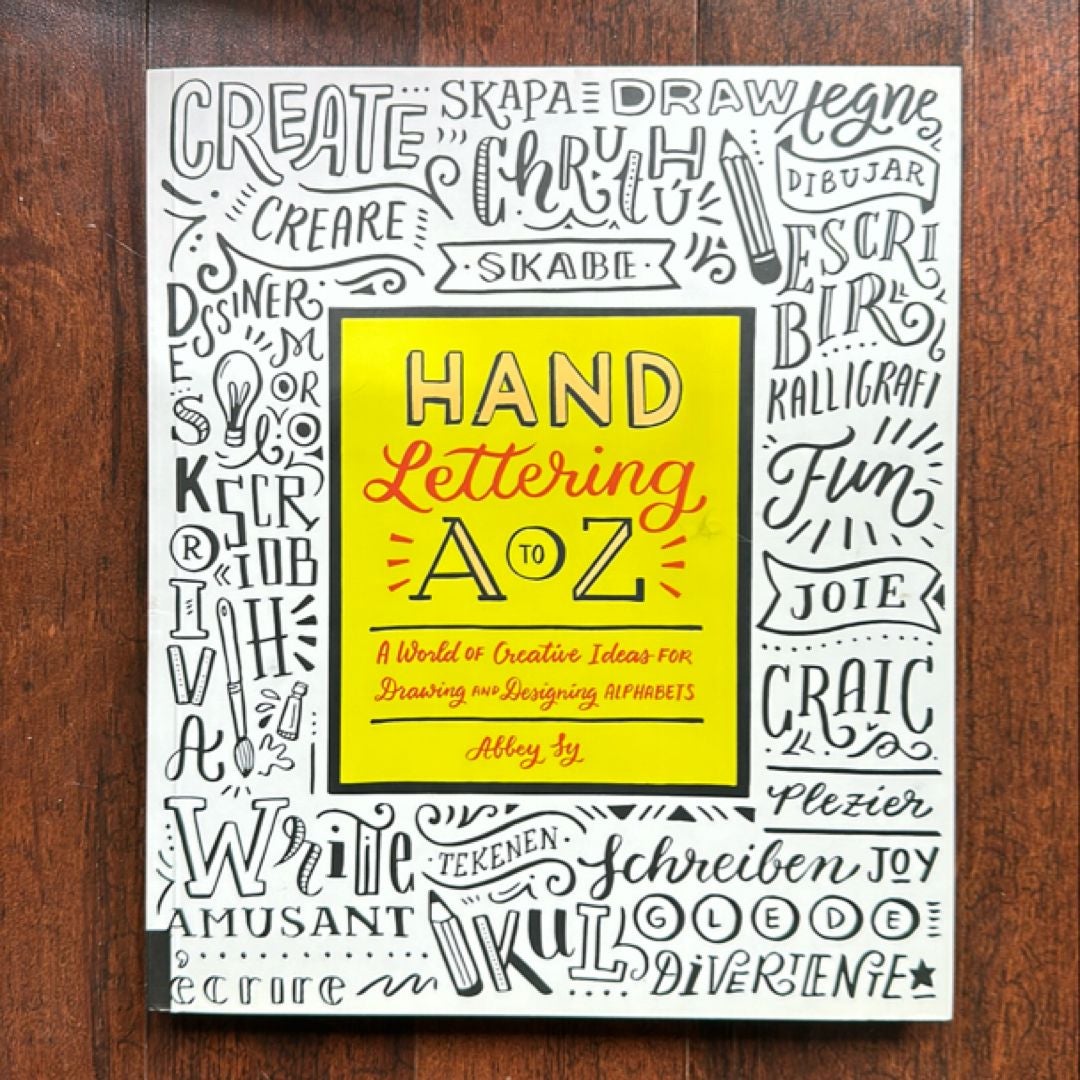 CREATE
SKAPA
DRAW
tegne
ChRUthÚ
DIBUJAR
CREARE
SKABE
ESCRI
BIR
DESSINER
MOR
O
KALLIGRAFI
HAND
Lettering
A TO Z
A World OF Creative Ideas FOR
Drawing AND Designing ALPHABETS
Abbey Sy
Fun
SKRIVA
SCR
IOB
H
JOIE
CRAIC
Plezier
Write
TEKENEN
Schreiben
JOY
AMUSANT
KUL
GLEDE
écrire
DIVERTENTE